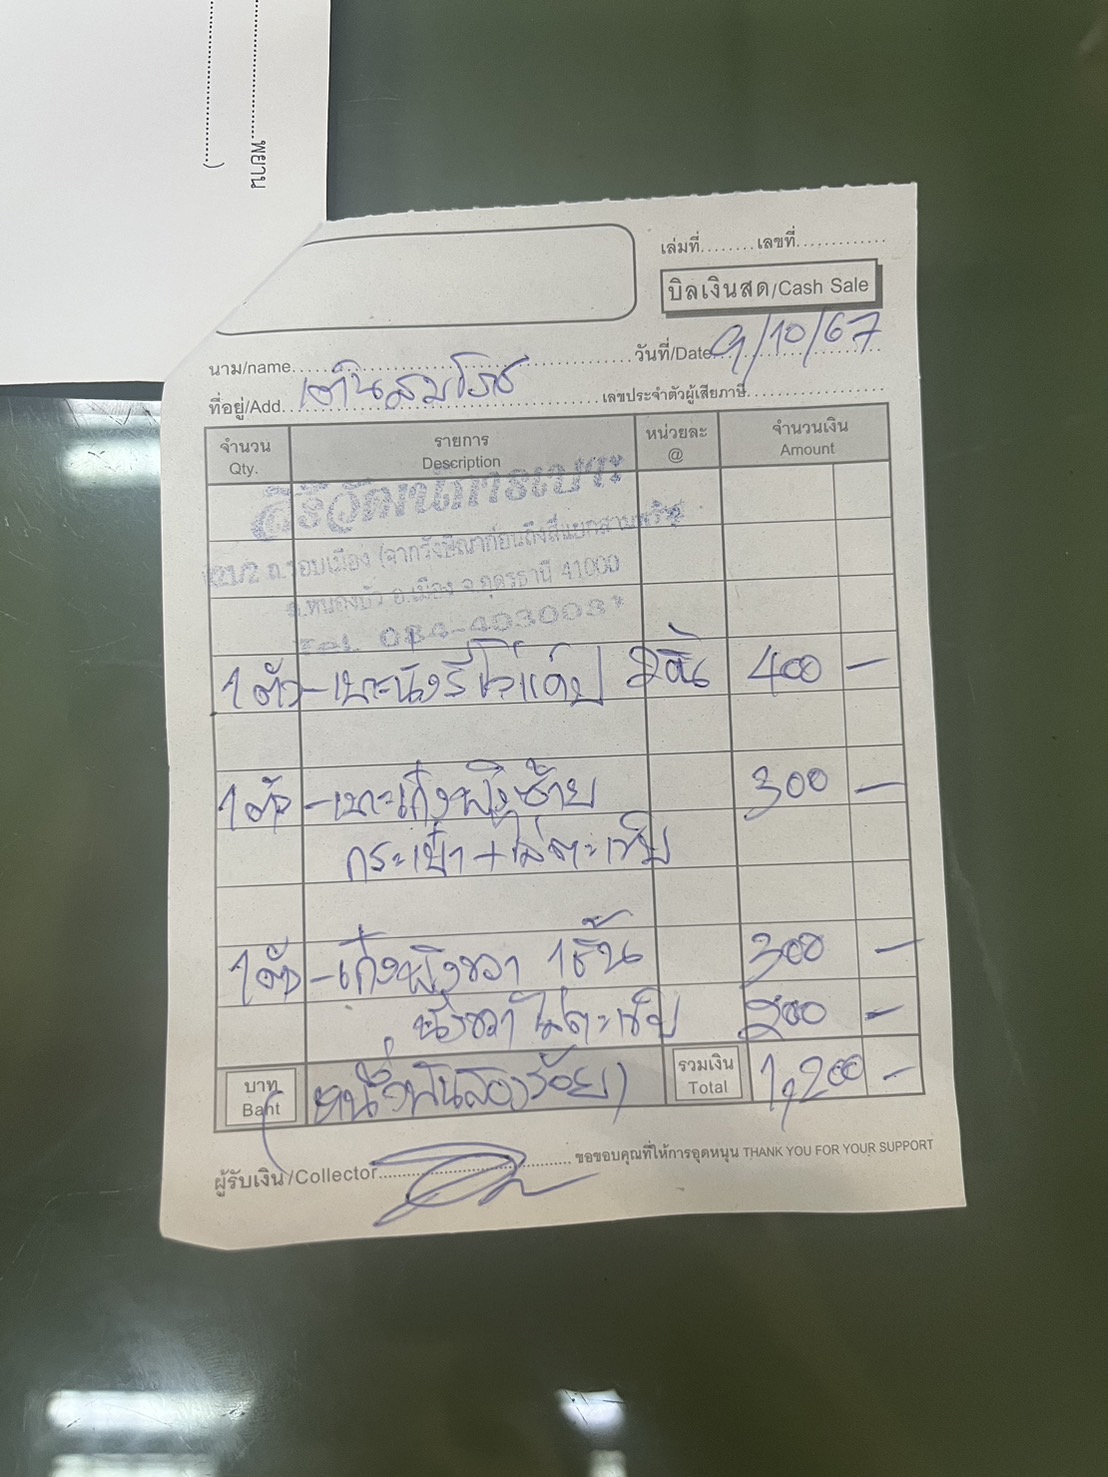 พยาน
เล่มที่........ เลขที่.............
บิลเงินสด/Cash Sale
นาม/name.......... วันที่/Date 9/10/67
ที่อยู่/Add. เลขประจำตัวผู้เสียภาษี
จำนวน รายการ หน่วยละ จำนวนเงิน
Qty. Description @ Amount
ถ.รอบเมือง
อ.เมือง จ.อุดรธานี 41000
Tel. 084-403003*
1ตัว - เบาะนั่งรีโว่แค๊ป 2ตอน 400 -
1ตัว - เบาะเก๋งพิงซ้าย 300 -
กระเป๋า + ไม่ตะเข็บ
1ตัว - เก๋งพิงขวา 1ชิ้น 300 -
นั่งขวา ไม่ตะเข็บ 200 -
บาท (หนึ่งพันสองร้อย) รวมเงิน 1,200 -
Baht Total
ผู้รับเงิน/Collector.......... ขอขอบคุณที่ให้การอุดหนุน THANK YOU FOR YOUR SUPPORT